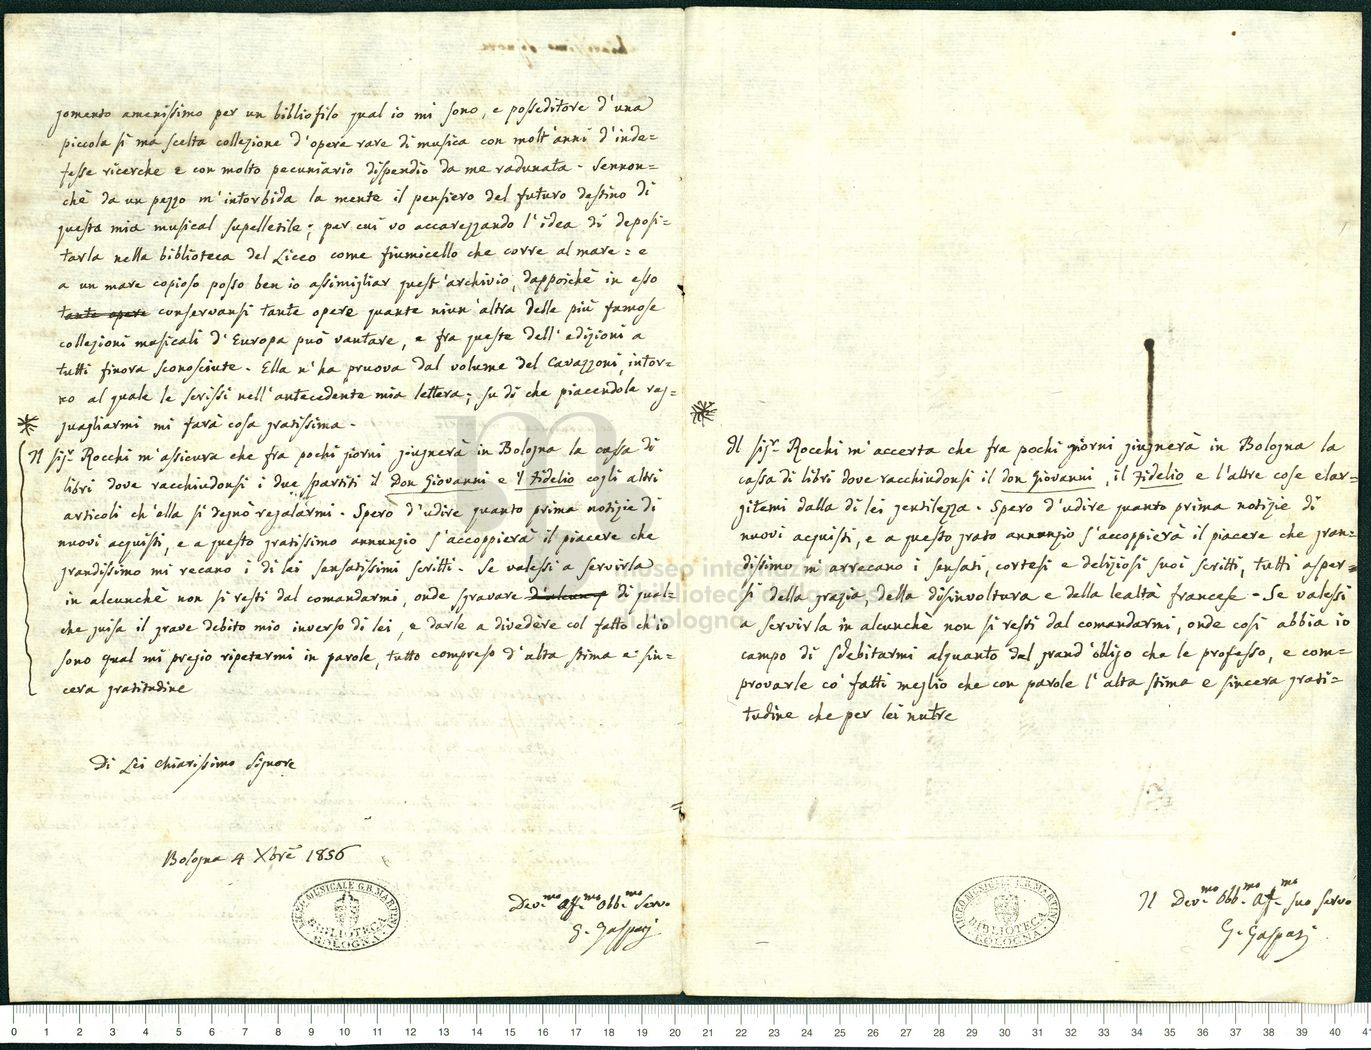 gomento amenissimo per un bibliofilo qual io mi sono, e posseditore d'una
piccola sì ma scelta collezione d'opere rare di musica con molt'anni d'inde=
fesse ricerche e con molto pecuniario dispendio da me radunata. Sennon=
chè da un pezzo m'intorbida la mente il pensiero del futuro destino di
questa mia musical supelletile; per cui vo accarezzando l'idea di deposi=
tarla nella biblioteca del Liceo come fiumicello che corre al mare: e
a un mare copioso posso ben io assimigliar quest'archivio, dappoichè in esso
tante opere conservansi tante opere quante niun'altra delle più famose
collezioni musicali d'Europa può vantare, e fra queste dell'edizioni a
tutti finora sconosciute. Ella n'ha pruova dal volume del Cavazzoni, intor=
no al quale le scrissi nell'antecedente mia lettera; su di che piacendole rag=
guagliarmi mi farà cosa gratissima.
Il sigr. Rocchi m'assicura che fra pochi giorni giugnerà in Bologna la cassa di
libri dove racchiudonsi i due partiti il Don Giovanni e il Fidelio cogli altri
articoli ch'ella si degnò regalarmi. Spero d'udire quanto prima notizie di
nuovi acquisti, e a questo gratissimo annunzio s'accoppierà il piacere che
grandissimo mi recano i di lei sensatissimi scritti. Se valessi a servirla
in alcunchè non si resti dal comandarmi, onde sgravare d'alcun di qual=
che guisa il grave debito mio inverso di lei, e darle a divedere col fatto ch'io
sono qual mi pregio ripetermi in parole, tutto compreso d'alta stima e sin=
cera gratitudine
Di Lei Chiarissimo Signore
Bologna 4 Xbrē 1856
Dev.mo Aff.mo Obb.mo Servo
G. Gaspari
LICEO MUSICALE G.B. MARTINI
BIBLIOTECA
BOLOGNA
Il sigr. Rocchi m'accerta che fra pochi giorni giugnerà in Bologna la
cassa di libri dove racchiudonsi il don Giovanni, il Fidelio e l'altre cose elar=
gitemi dalla di lei gentilezza. Spero d'udire quanto prima notizie di
nuovi acquisti, e a questo grato annunzio s'accoppierà il piacere che gran=
dissimo m'arrecano i sensati, cortesi e deliziosi suoi scritti, tutti asper=
si della grazia, della disinvoltura e della lealtà francese. Se valessi
a servirla in alcunchè non si resti dal comandarmi, onde così abbia io
campo di sdebitarmi alquanto del grand'obbligo che le professo, e com=
provarle co' fatti meglio che con parole l'alta stima e sincera grati=
tudine che per lei nutre
Il Dev.mo Obb.mo Aff.mo suo servo
G. Gaspari
LICEO MUSICALE G.B. MARTINI
BIBLIOTECA
BOLOGNA
museo internazionale
e biblioteca della musica
di bologna
0 1 2 3 4 5 6 7 8 9 10 11 12 13 14 15 16 17 18 19 20 21 22 23 24 25 26 27 28 29 30 31 32 33 34 35 36 37 38 39 40